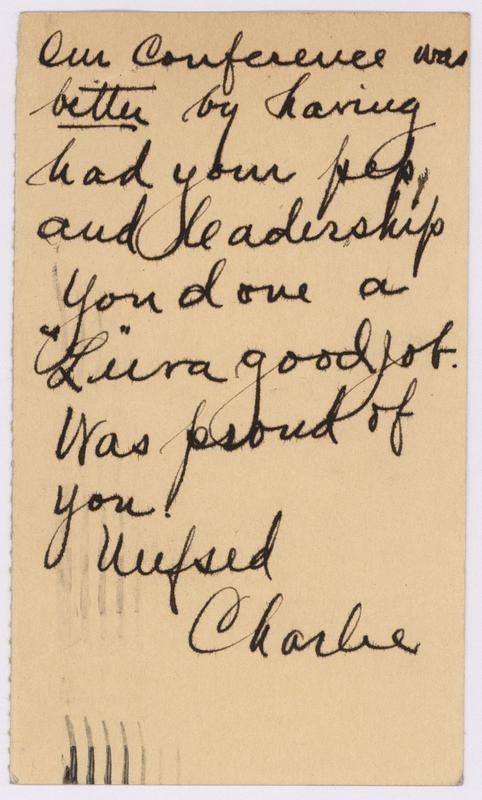 Our Conference was
better by having
had your pep,
and leadership
You done a
good job.
Was proud of
you.
Charlie